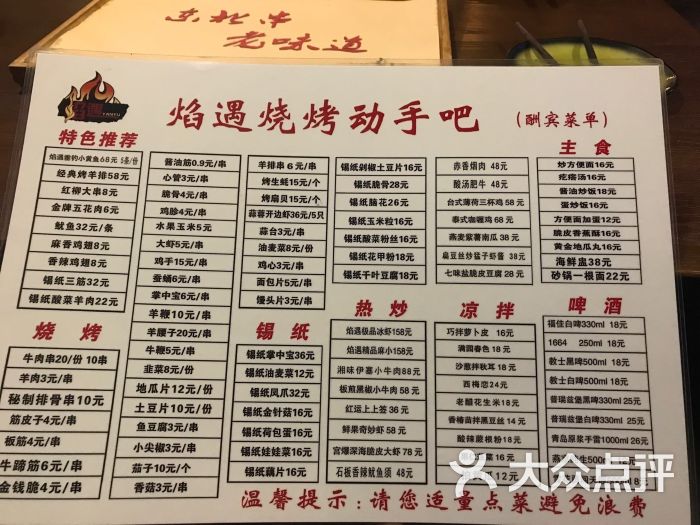 东北牛
老味道
焰遇
YANYU
焰遇烧烤动手吧
(酬宾菜单)
特色推荐
焰遇垂钓小黄鱼68元 5条/份
经典烤羊排58元
红柳大串8元
金牌五花肉6元
鱿鱼32元/条
麻香鸡翅8元
香辣鸡翅8元
锡纸三筋32元
锡纸酸菜羊肉22元
烧烤
牛肉串20/份 10串
羊肉3元/串
秘制排骨串10元
筋皮子4元/串
板筋4元/串
牛蹄筋6元/串
金钱脆4元/串
酱油筋0.9元/串
心管3元/串
脆骨4元/串
鸡胗4元/串
水果玉米5元
大虾5元/串
鸡手15元/串
蚕蛹6元/串
掌中宝6元/串
羊鞭10元/串
羊腰子20元/串
牛鞭5元/串
韭菜8元/份
地瓜片12元/份
土豆片10元/份
鱼豆腐3元/串
小尖椒3元/串
茄子10元/个
香菇3元/串
羊排串6元/串
烤生蚝15元/个
烤扇贝15元/个
蒜蓉开边虾36元/5只
蒜台3元/串
油麦菜8元/份
鸡心3元/串
面包片5元/串
馒头片3元/串
锡纸
锡纸掌中宝36元
锡纸油麦菜12元
锡纸凤爪32元
锡纸金针菇16元
锡纸荷包蛋16元
锡纸娃娃菜16元
锡纸藕片16元
锡纸剁椒土豆片16元
锡纸脆骨28元
锡纸脑花26元
锡纸玉米粒16元
锡纸酸菜粉丝16元
锡纸花甲粉18元
锡纸千叶豆腐18元
热炒
焰遇极品冰虾158元
焰遇精品麻小158元
湘味伊塞小牛肉88元
板煎黑椒小牛肉58元
红运上上签 36元
鲜果奇妙虾 58元
宫爆深海脆皮大虾 58元
石板香辣鱿鱼须 48元
赤香烟肉 48元
酸汤肥牛 48元
台式薄荷三杯鸡 58元
泰式咖喱鸡 68元
燕麦紫薯南瓜 38元
扁豆丝炒猛子虾酱 38元
七味盐脆皮豆腐 28元
凉拌
巧拌萝卜皮 16元
满园春色 18元
沙葱拌秋耳 18元
西梅恋24元
老醋花生米18元
香椿苗拌黑豆丝 14元
酸辣蕨根粉 18元
主食
炒方便面16元
疙瘩汤16元
酱油炒饭18元
蛋炒饭16元
方便面加蛋12元
脆皮香蕉酥16元
黄金地瓜丸16元
海鲜盅38元
砂锅一根面22元
啤酒
福佳白啤330ml 18元
1664 250ml 18元
教士黑啤500ml 18元
教士白啤500ml 18元
普瑞兹堡黑啤500ml 25元
普瑞兹堡白啤500ml 25元
青岛原浆手雷1000ml 26元
大众点评
温馨提示:请您适量点菜避免浪费